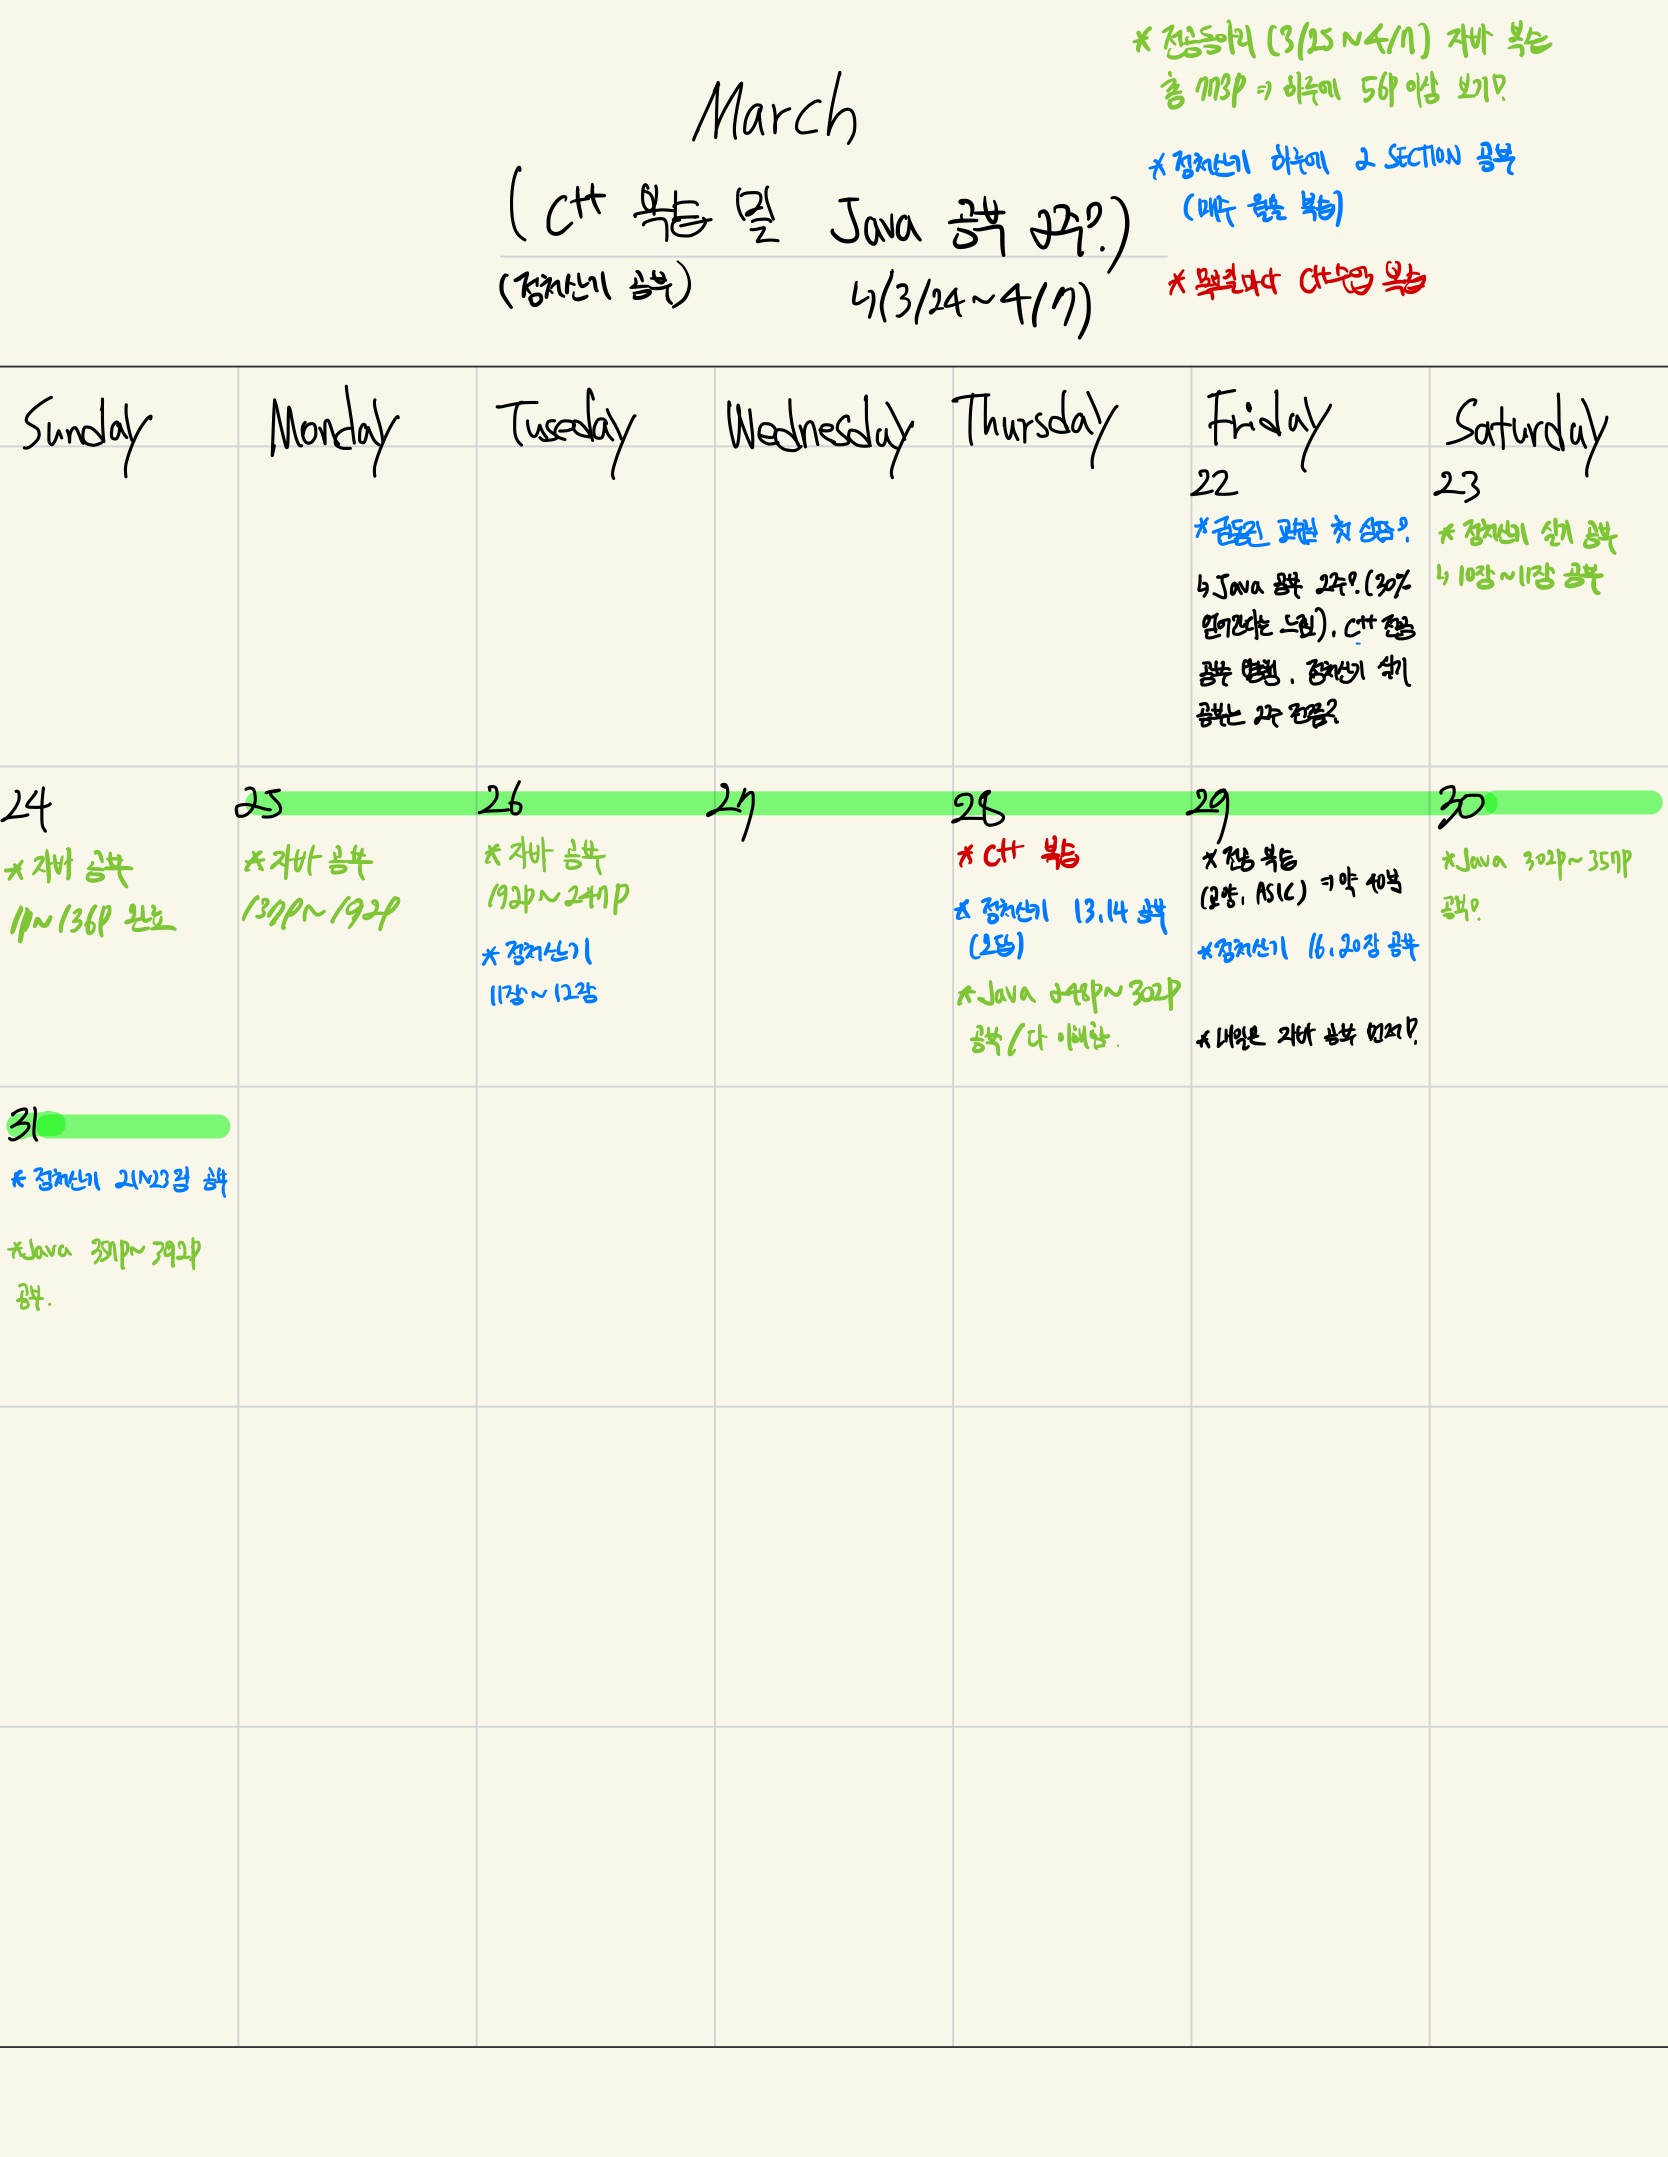 March
( C++ 복습 및 Java 공부 2주?.)
(정처산기 공부)
↳(3/24~4/7)
* 전공동아리 (3/25~4/7) 자바 복습
총 773p ⇒ 하루에 56p 이상 보기?.
* 정처산기 하루에 2 SECTION 공부
(매주 복습)
* C++수업 복습
Sunday Monday Tuseday Wednesday Thursday Friday Saturday
22
* 교수님 첫 상담?.
↳ Java 공부 2주?.(30%
얻어간다는 느낌). C++ 전공
공부 병행. 정처산기 실기
공부는 2주 전쯤?
23
* 정처산기 실기 공부
↳ 10장~11장 공부
24
* 자바 공부
1p~136p 완료
25
* 자바 공부
137p~192p
26
* 자바 공부
192p~247p
* 정처산기
11장~12장
27
28
* C++ 복습
* 정처산기 13.14 공부
(오답)
* Java 248p~302p
공부 / 다 이해함.
29
* 전공 복습
(교양, ASIC) ⇒ 약 40분
* 정처산기 16.20장 공부
* 내일은 자바 공부 먼저?.
30
* Java 302p~357p
공부?.
31
* 정처산기 21~23장 공부
* Java 357p~392p
공부.